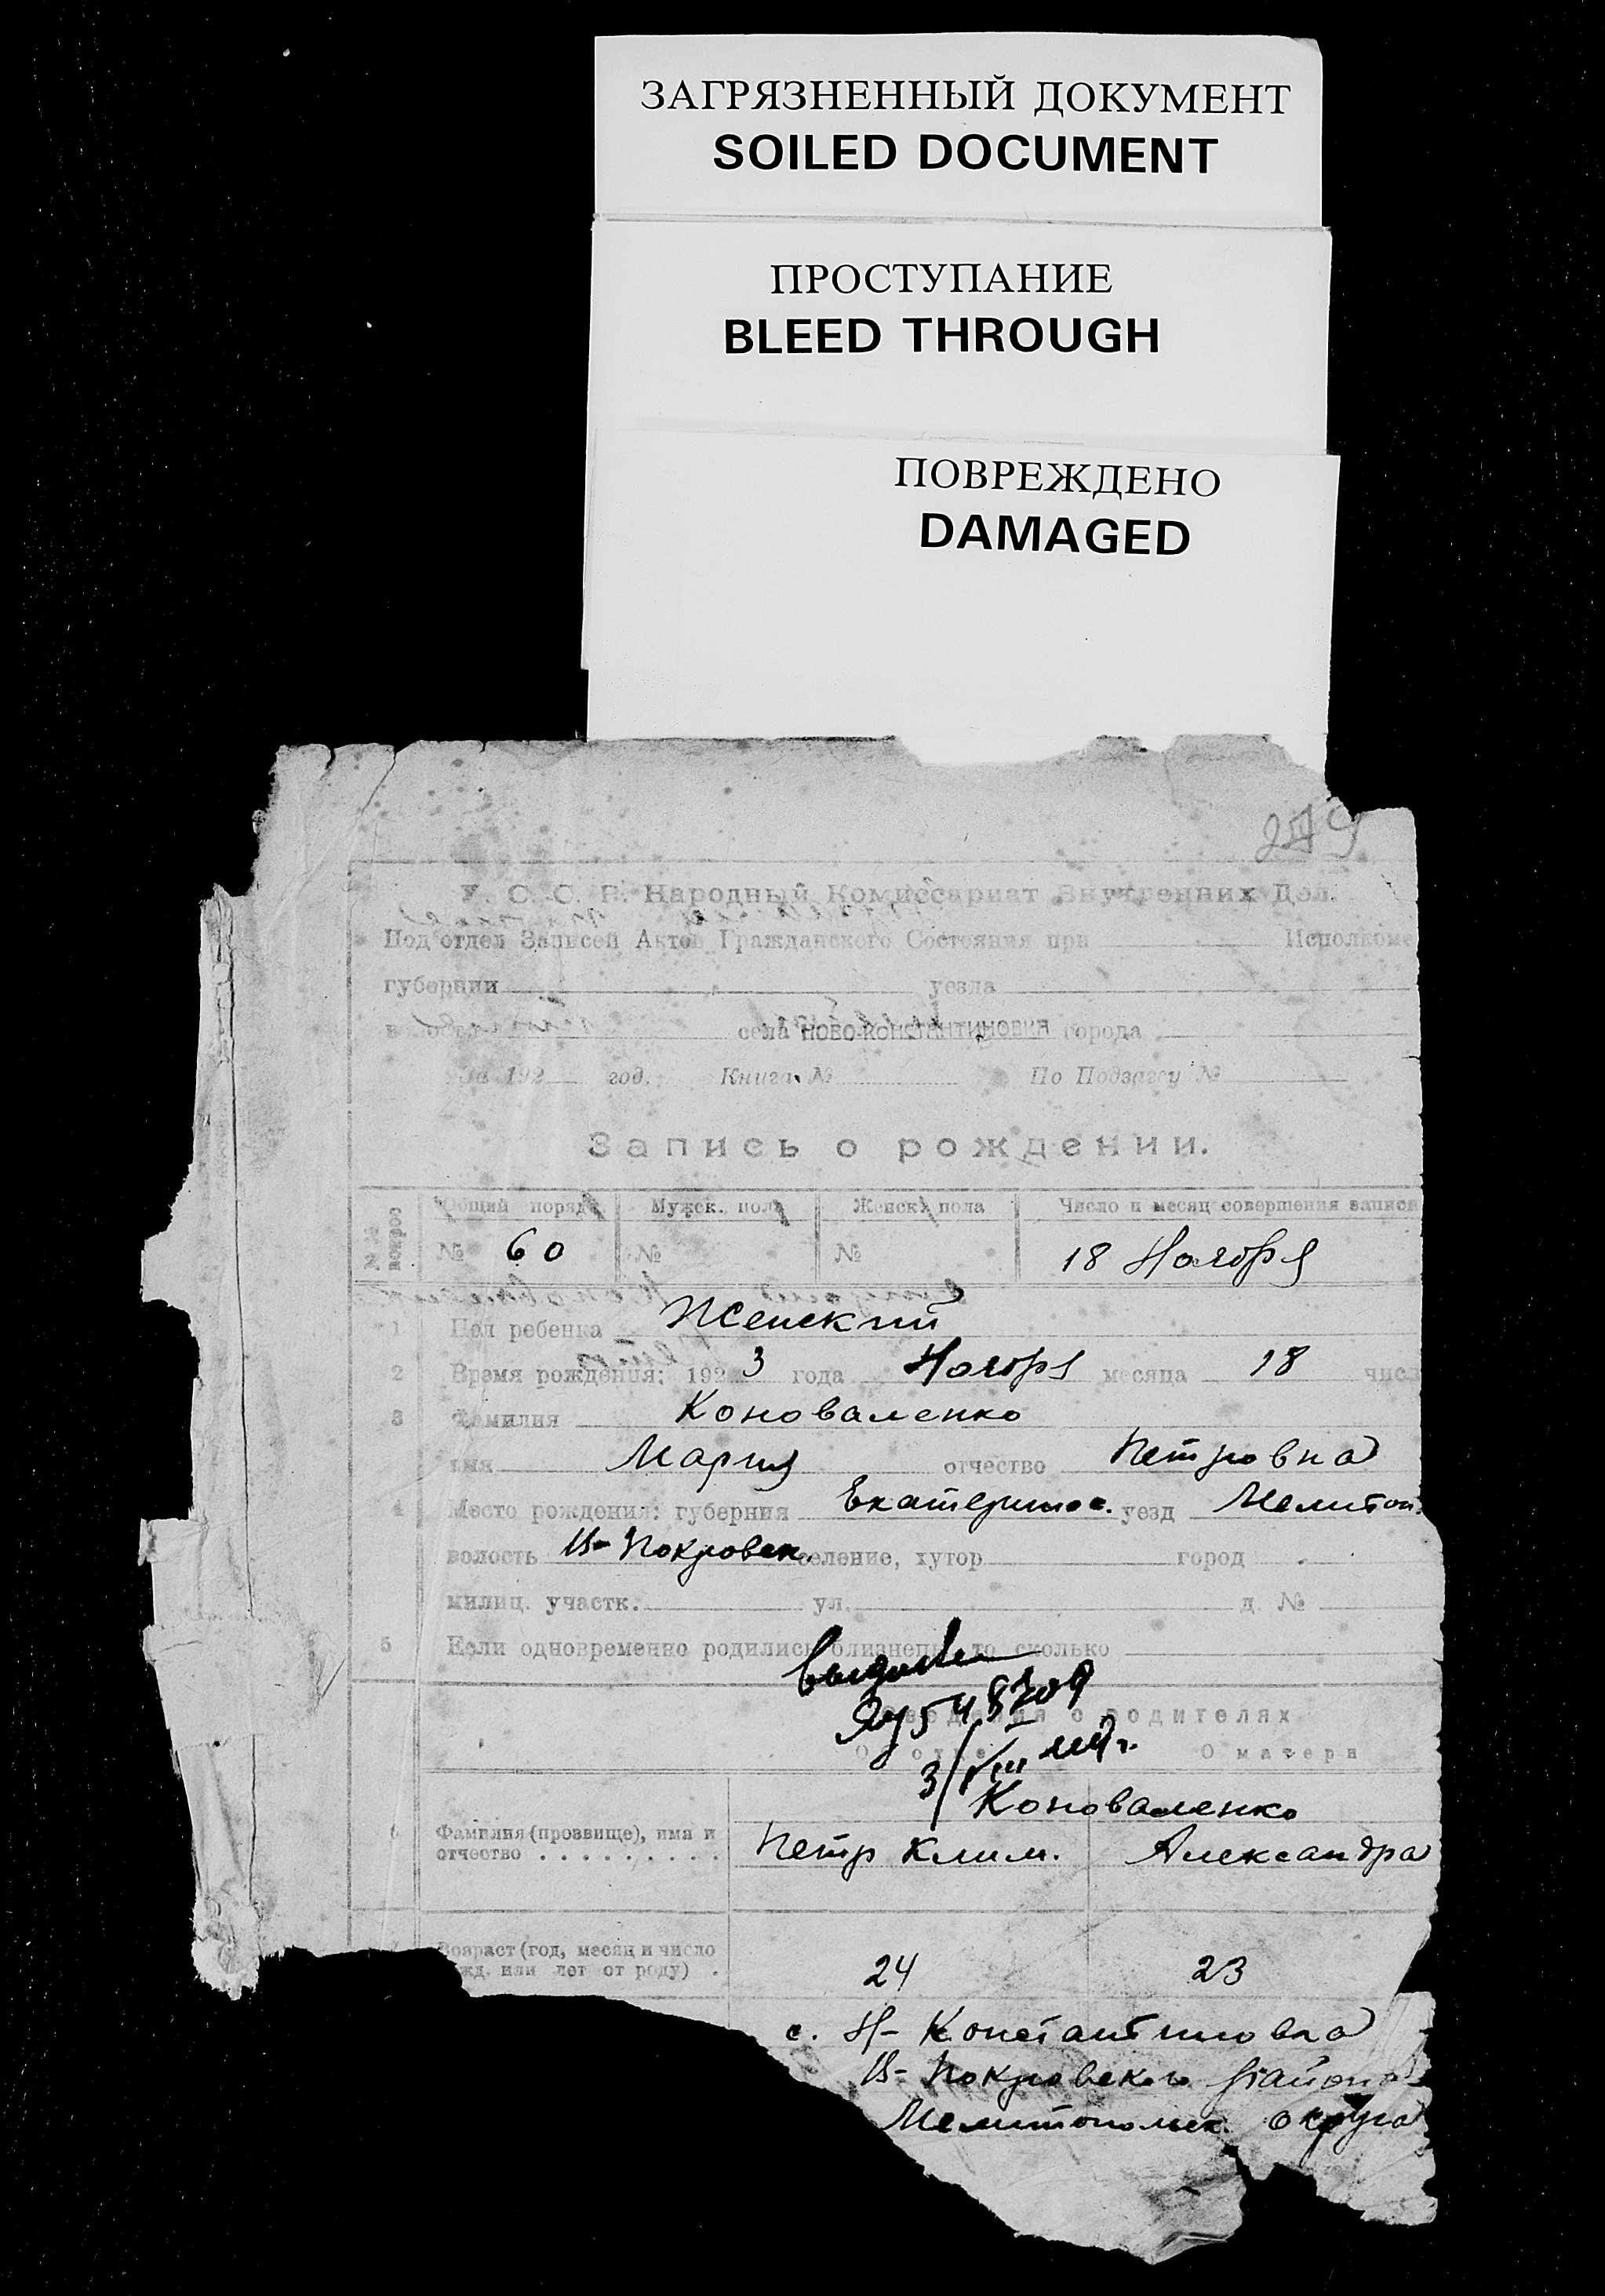 ЗАГРЯЗНЕННЫЙ ДОКУМЕНТ
SOILED DOCUMENT
ПРОСТУПАНИЕ
BLEED THROUGH
ПОВРЕЖДЕНО
DAMAGED
У. С. С. Р. Народный Комиссариат Внутренних Дел.
Подотдел Записей Актов Гражданского Состояния при Исполкоме
губернии уезда
села НОВО-КОНСТЕНТИНОВКЯ города
За 192 год. Книга № По Подзагсу №
Запись о рождении.
Общий поряд. Мужск. пола Женск. пола Число и месяц совершения записи
№ 60 № № 18 Ноября
1 Пол ребенка Женский
2 Время рождения: 1923 года Ноябр месяца 18 числ
3 Фамилия Коноваленко
имя Мария отчество Петровна
4 Место рождения: губерния Екатеринос. уезд Мелитоп.
волость Покровск. селение, хутор город
милиц. участк. ул. д. №
5 Если одновременно родились близнецы, то сколько
Сведения о родителях
О отце О матери
Коноваленко
6 Фамилия (прозвище), имя и
отчество Петр Клим. Александра
Возраст (год, месяц и число
жд. или лет от роду) 24 23
с. Н-Константиновка
Покровского района
Мелитопольск. округа